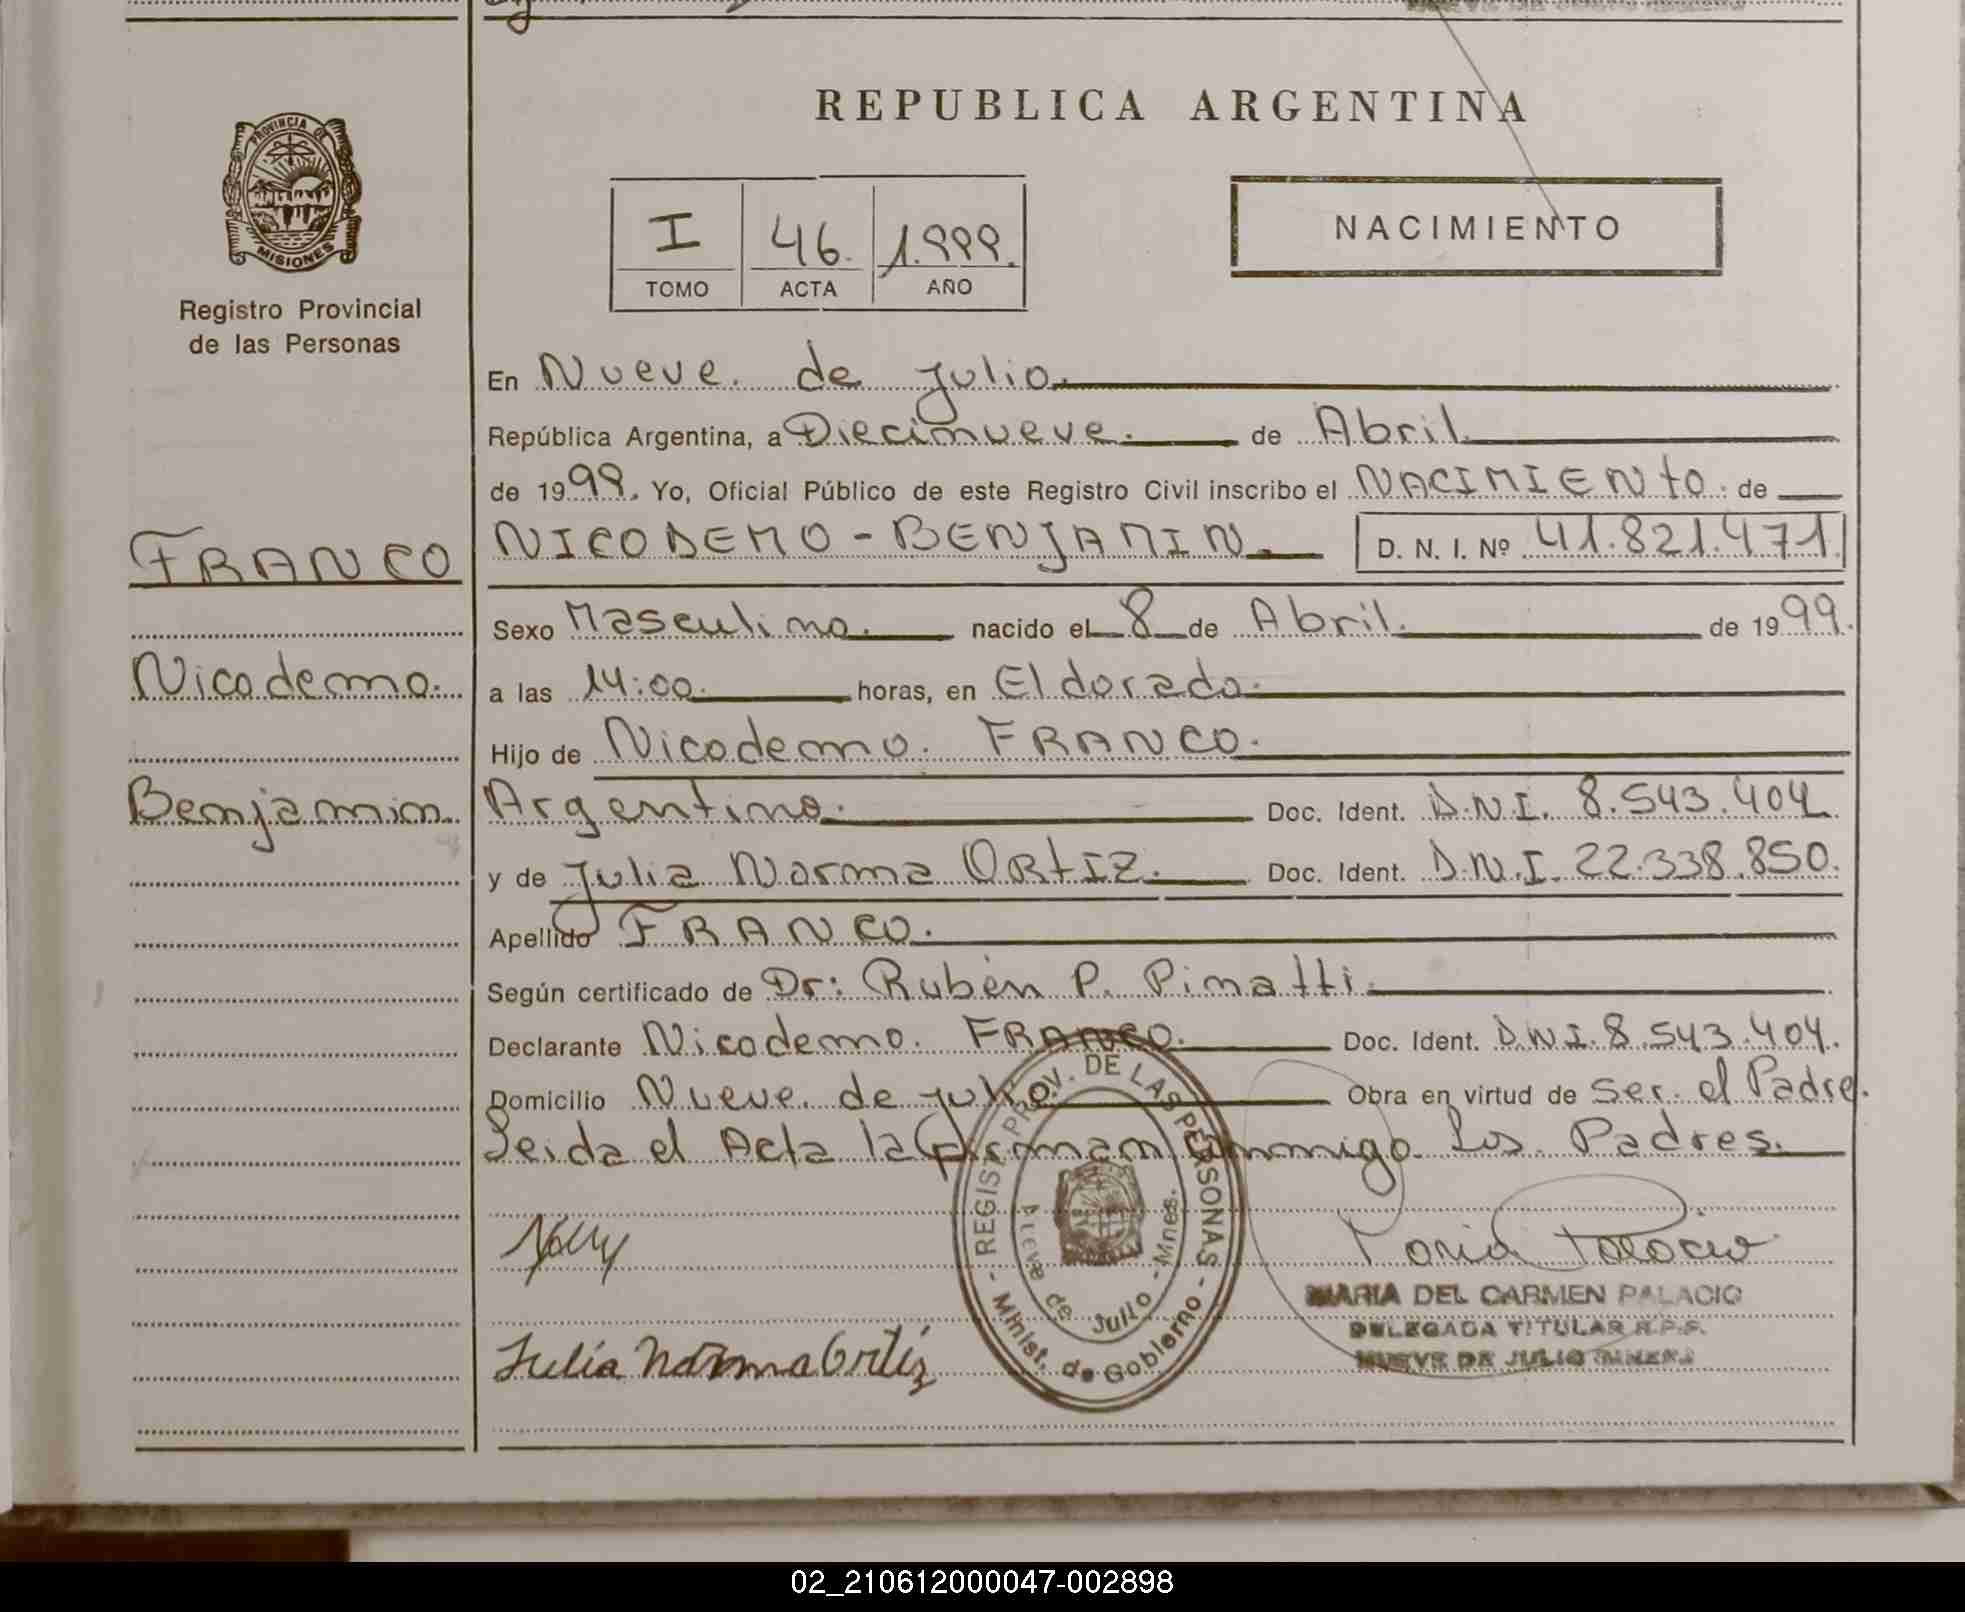 REPUBLICA ARGENTINA
PROVINCIA DE MISIONES
Registro Provincial
de las Personas
I 46. 1.999.
TOMO ACTA AÑO
NACIMIENTO
En Nueve de Julio.
República Argentina, a Diecinueve. de Abril.
de 1999. Yo, Oficial Público de este Registro Civil inscribo el NACIMIENTO. de
FRANCO
Nicodemo.
Benjamin.
NICODEMO - BENJAMIN. D. N. I. Nº 41.821.471
Sexo Masculino. nacido el 8 de Abril. de 1999.
a las 14:00. horas, en Eldorado.
Hijo de Nicodemo. FRANCO.
Argentino. Doc. Ident. D.N.I. 8.543.404
y de Julia Norma ORTIZ. Doc. Ident. D.N.I. 22.338.850.
Apellido FRANCO.
Según certificado de Dr: Rubén P. Pinatti.
Declarante Nicodemo. FRANCO. Doc. Ident. D.N.I. 8.543.404.
Domicilio Nueve. de Julio. Obra en virtud de Ser. el Padre.
Leida el Acta la firman conmigo. Los. Padres.
REGIST. PROV. DE LAS PERSONAS
- Minist. de Gobierno -
Nueve de Julio - Mnes.
Julia Norma Ortiz
Maria Palacio
MARIA DEL CARMEN PALACIO
DELEGADA TITULAR R.P.P.
NUEVE DE JULIO
02_210612000047-002898